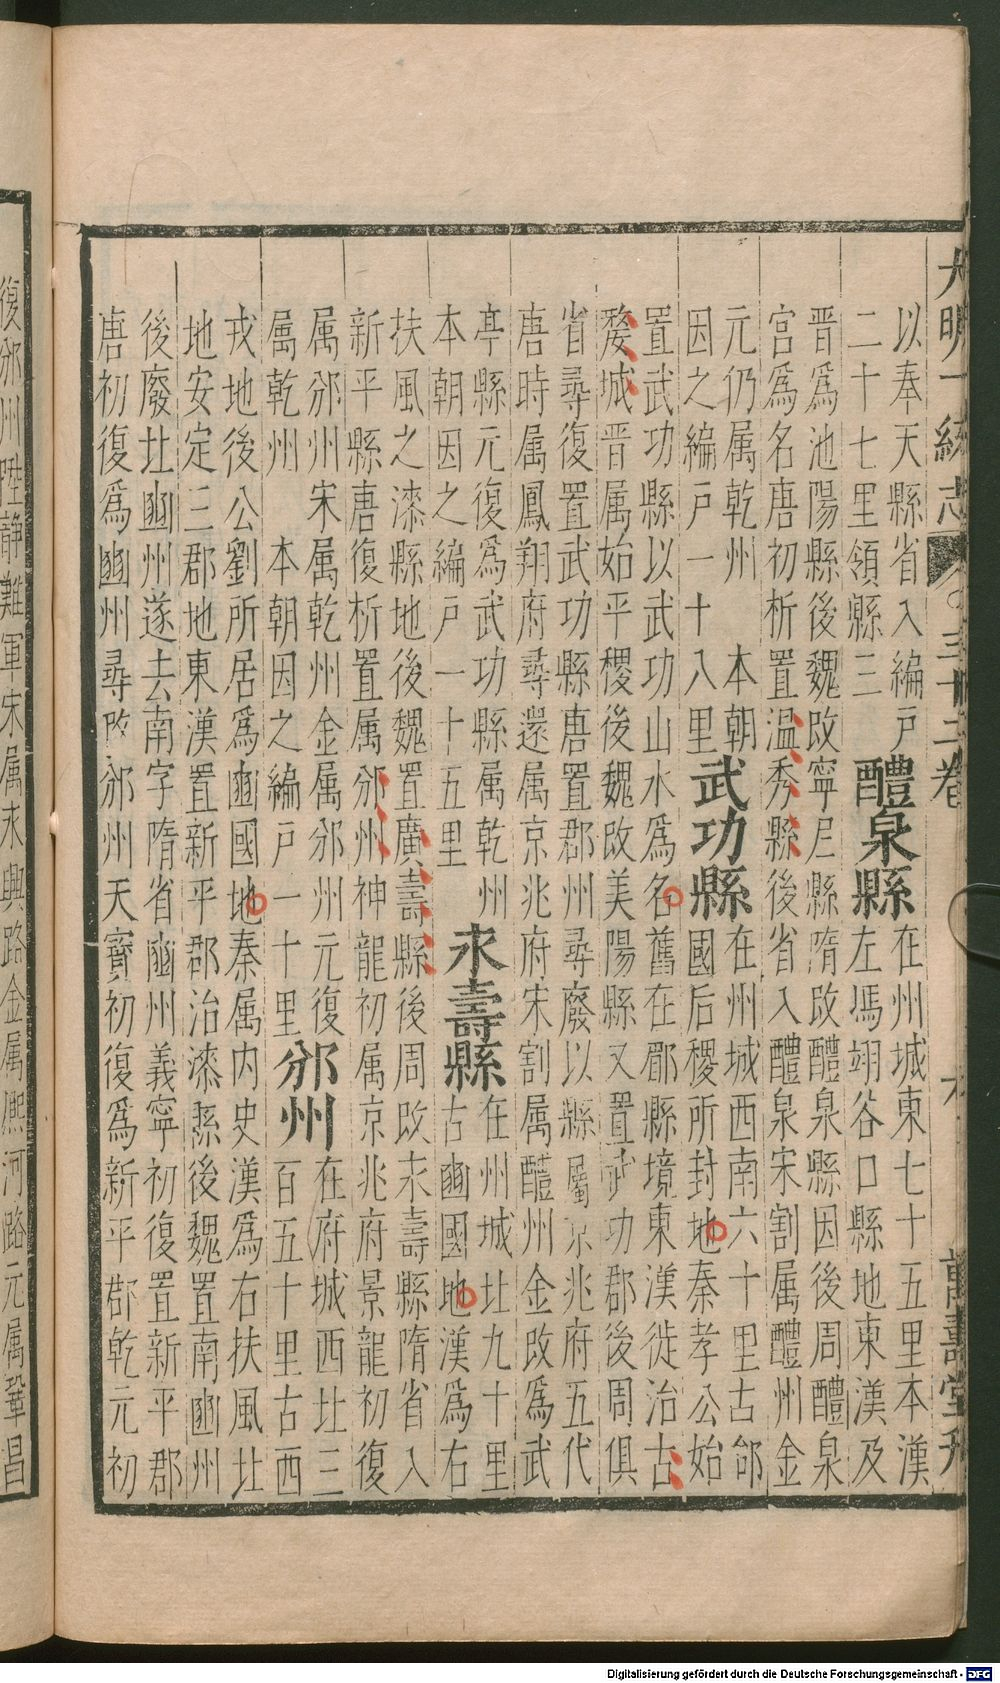 大明一統志 三十二卷 六 萬壽堂刋
以奉天縣省入編戶
二十七里領縣三
醴泉縣
在州城東七十五里本漢
左馮翊谷口縣地東漢及
晋爲池陽縣後魏改寧尼縣隋改醴泉縣因後周醴泉
宮爲名唐初析置温秀縣後省入醴泉宋割属醴州金
元仍属乾州 本朝
因之編戶一十八里
武功縣
在州城西南六十里古邰
國后稷所封地秦孝公始
置武功縣以武功山水爲名舊在郿縣境東漢徙治古
斄城晋属始平稷後魏改美陽縣又置武功郡後周俱
省尋復置武功縣唐置郡州尋廢以縣屬京兆府五代
唐時属鳳翔府尋還属京兆府宋割属醴州金改爲武
亭縣元復爲武功縣属乾州
本朝因之編戶一十五里
永壽縣
在州城北九十里
古豳國地漢爲右
扶風之漆縣地後魏置廣壽縣後周改永壽縣隋省入
新平縣唐復析置属邠州神龍初属京兆府景龍初復
属邠州宋属乾州金属邠州元復
属乾州 本朝因之編戶一十里
邠州
在府城西北三
百五十里古西
戎地後公劉所居爲豳國地秦属内史漢爲右扶風北
地安定三郡地東漢置新平郡治漆縣後魏置南豳州
後廢北豳州遂去南字隋省豳州義寧初復置新平郡
唐初復爲豳州尋改邠州天寶初復爲新平郡乾元初
復邠州陞静難軍宋属永興路金属熈河路元属鞏昌
Digitalisierung gefördert durch die Deutsche Forschungsgemeinschaft - DFG